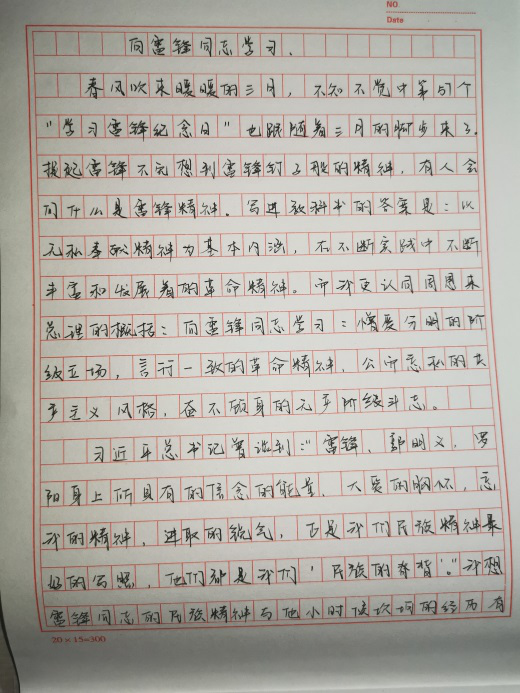 NO.
Date
向雷锋同志学习.
春风吹来暖暖的三月，不知不觉中第57个
"学习雷锋纪念日"也跟随着三月的脚步来了.
提起雷锋不先想到雷锋钉子般的精神，有人会
问什么是雷锋精神。写进教科书的答案是：以
无私奉献精神为基本内涵，在不断实践中不断
丰富和发展着的革命精神。而我更认同周恩来
总理的概括：向雷锋同志学习：憎爱分明的阶
级立场，言行一致的革命精神，公而忘私的共
产主义风格，奋不顾身的无产阶级斗志。
习近平总书记曾谈到："雷锋、郭明义、罗
阳身上所具有的信念的能量、大爱的胸怀、忘
我的精神、进取的锐气，正是我们民族精神最
好的写照，他们都是我们'民族的脊背'。"我想
雷锋同志的民族精神与他小时候坎坷的经历有
20×15=300